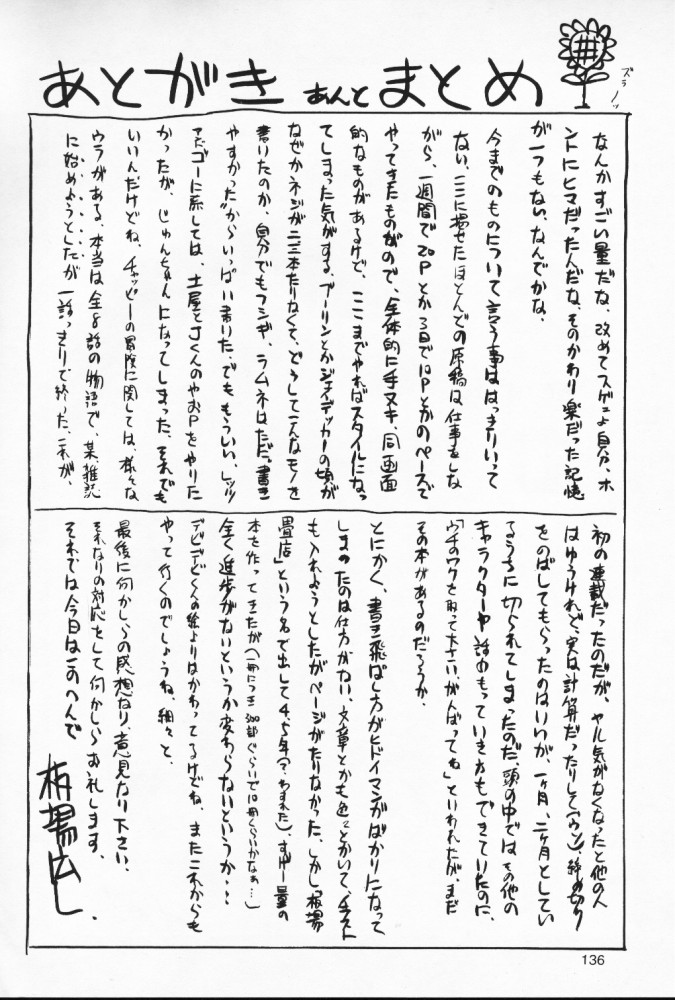 あとがき あんど まとめ
ズラノッ
なんかすごい量だな、改めてスゲェよ自分、ホ
ントにヒマだった人だな、そのかわり楽だった記憶
が一つもない、なんでかな、
今までのものについて言う事ははっきりいって
ない、ここに揚せたほとんどの原稿は仕事をしな
がら、一週間で20Pとか3日で12Pとかのペースで
やってきたものなので、全体的に手ヌキ、同画面
的なものがあるけど、ここまでやればスタイルになっ
てしまった気がする、ブーリンとかジェイデッカーの頃が
なぜかネジが二三本たりなくて、どうしてこんなモノを
書いたのか、自分でもフシギ、ラムネはただ"書き
やすかった"からいっぱい書いた、でももういい、レッツ
アンドゴーに系しては、土屋とJくんのやおPをやりた
かったが、じゅんちゃんになってしまった、それでも
いいんだけどね、チャッピーの冒険に関しては、様々な
ウラがある、本当は全8話の物語で、某、雑誌
に始めようとしたが一話っきりで終った、これが、
初の連載だったのだが、ヤル気がなくなったと他の人
はゆうけれど、実は計算だったりして(ウソ)、〆切り
をのばしてもらったのはいいが、一ヶ月、二ヶ月としてい
るうちに切られてしまったのだ、頭の中では、その他の
キャラクターや話のもっていき方もできていたのに、
「ウチのワクを取って下さい、がんばっても」といわれたが、まだ
その本があるのだろうか、
とにかく、書き飛ばし方がヒドイマンガばかりになって
しまったのは仕方がない、文章とかも色々とかいて、イラスト
も入れようとしたがページがたりなかった、しかし「板場
畳店」という名で出して4、5年(?わすれた)、すげー量の
本を作ってきたが(一冊につき300部ぐらいで10冊くらいかなぁ…)
全く進歩がないというか変わらないというか・・
デビデビくんの絵よりはかわってるけどね、またこれからも
やって行くのでしょうね、細々と、
最後に何かしらの感想なり、意見なり下さい、
それなりの対応をして何かしらお礼します、
それでは今日はこのへんで
板場広し、
136